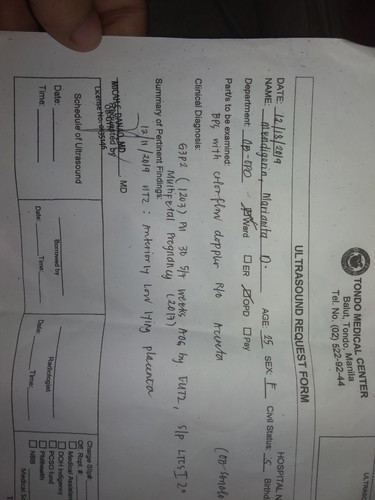 TONDO MEDICAL CENTER
Balut, Tondo, Manila
Tel. No. (02) 522-92-44
ULTRASOUND REQUEST FORM
HOSPITAL N
DATE: 12/18/2019
NAME: Marianita D. AGE: 25 SEX: F Civil Status: S Birth
Department: OB-GYN Ward ER OPD Pay
Part/s to be examined:
BPS with colorflow doppler R/O Accreta
Clinical Diagnosis:
G3P2 (1203) PU 30 5/7 weeks AOG by EUTZ, S/P LTCS I 2°
Multifetal Pregnancy (2017)
Summary of Pertinent Findings:
12/11/2019 UTZ: Anteriorly low lying placenta
Requested by MD
License No.
Schedule of Ultrasound
Date:
Time:
Borrowed by
Date: Time:
Radiologist
Date: Time:
Charge Slip#
Off. Rcpt. #
Medical Assista
DOH Indigency
PCSO fund
Philhealth
NBB